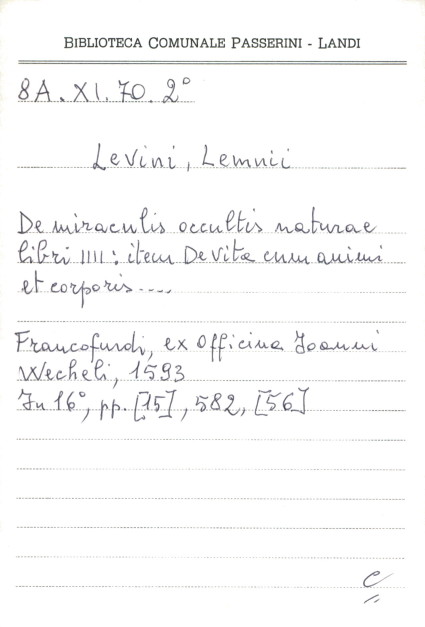 BIBLIOTECA COMUNALE PASSERINI - LANDI
8A. XI. 70. 2°
Levini, Lemnii
De miraculis occultis naturae
libri IIII: item De vita cum animi
et corporis....
Francofurdi, ex officina Joanni
Wecheli, 1593
In 16°, pp. [15], 582, [56]
C